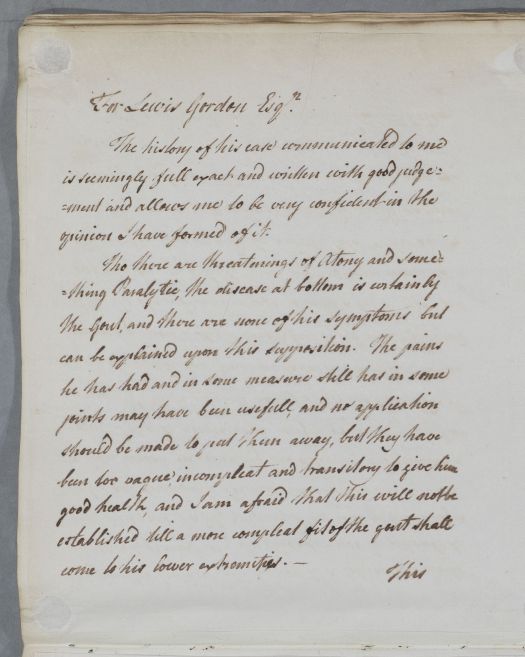 For Lewis Gordon Esqr.
The history of his case communicated to me
is seemingly full exact and written with good judge=
=ment and allows me to be very confident in the
opinion I have formed of it.
Tho there are threatnings of Atony and some=
=thing Paralytic, the disease at bottom is certainly
the Gout, and there are none of his symptoms but
can be explained upon this supposition. The pains
he has had and in some measure still has in some
joints may have been usefull, and no application
should be made to put them away, but they have
been too vague, incompleat and transitory to give him
good health, and I am afraid that this will not be
established till a more compleat fit of the gout shall
come to his lower extremitys. —
This